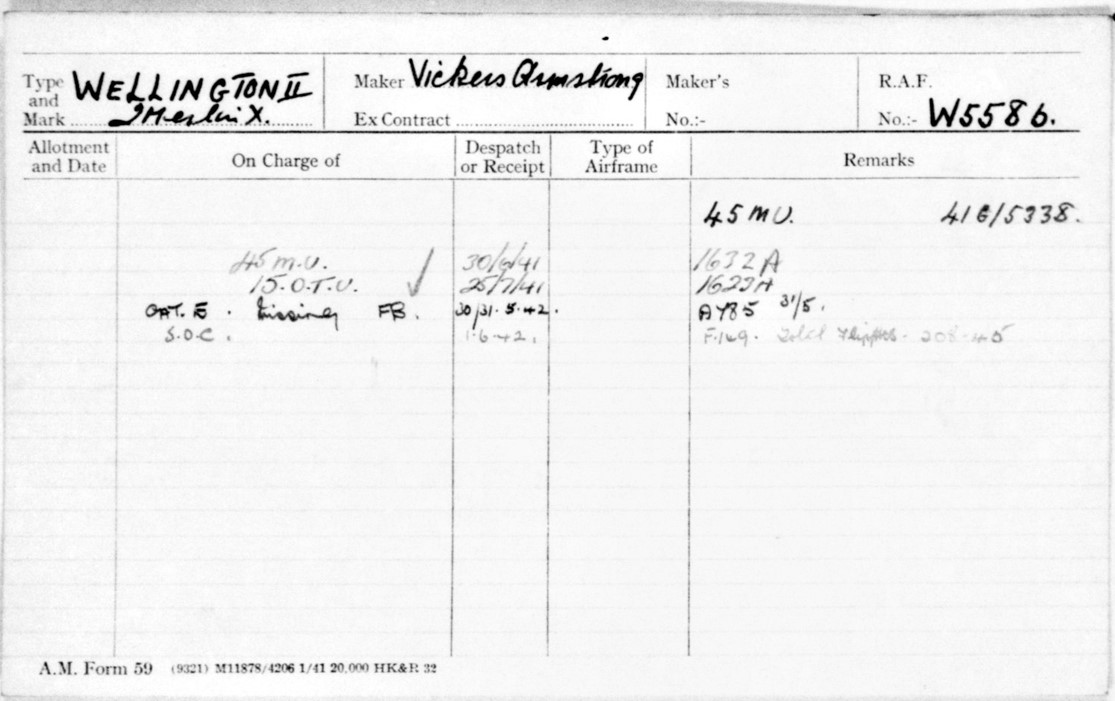 Type and Mark WELLINGTON II 2 Merlin X. Maker Vickers Armstrong Ex Contract Maker's No.:- R.A.F. No.:- W5586.
Allotment and Date On Charge of Despatch or Receipt Type of Airframe Remarks
45 MU. 41G/5338.
45 M.U. 30/6/41 1632A
15. O.T.U. ✓ 25/7/41
CAT. E. Missing FB. 30/31.5.42. AY85 31/5.
S.O.C. 1.6.42. F.149. Total Flying Hrs - 208.45
A.M. Form 59 (9321) M11878/4206 1/41 20,000 HK&P. 32